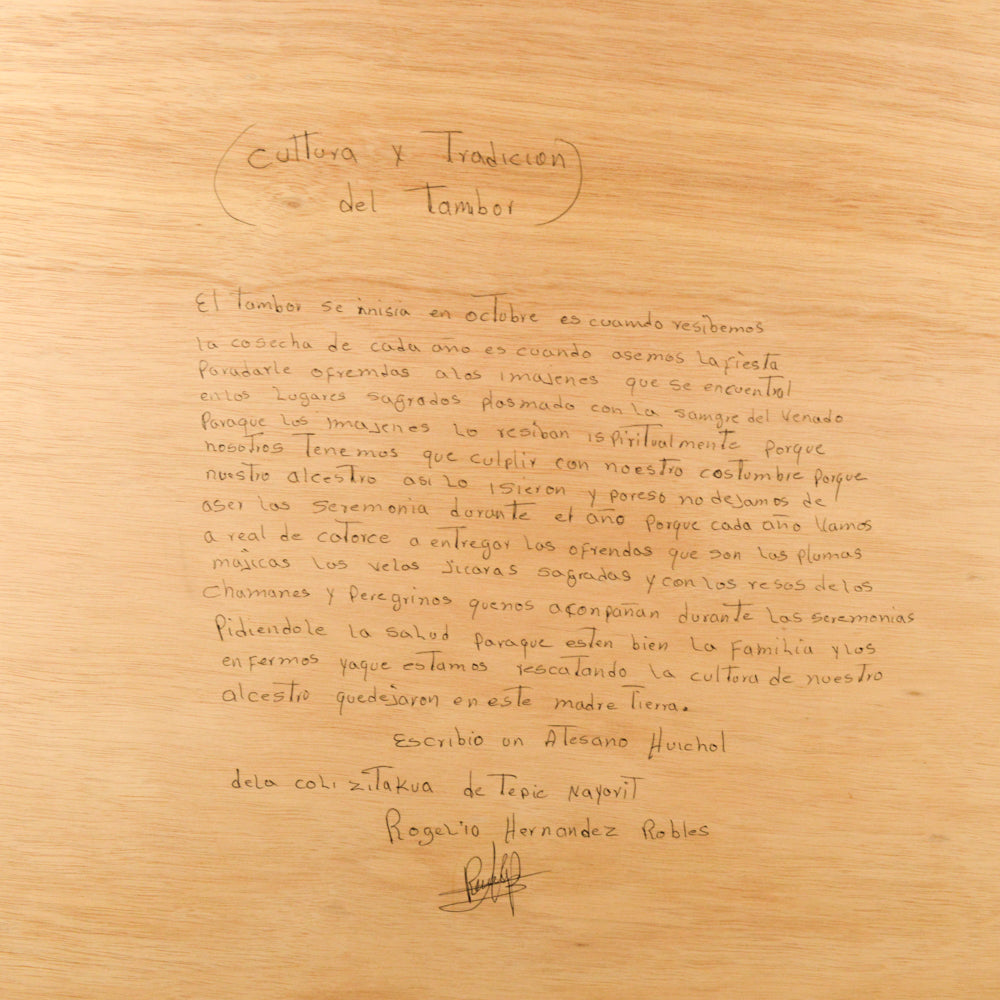 (Cultura y Tradicion
del Tambor)
El Tambor se innisia en octubre es cuamdo resibemos
la cosecha de cada año es cuando asemos La fiesta
Paradarle ofremdas alos imajenes que se encuentral
enlos Lugares sagrados plasmado con La samgre del Venado
Paraque Los imajenes Lo resiban ispiritualmente Porque
nosotros Tenemos que culplir con noestro costumbre Porque
nuestro alcestro asi Lo isieron y poreso no dejamos de
aser las seremonia durante el año Porque cada año Vamos
a real de catorce a entregar Las ofrendas que son Las plumas
majicas Las velas Jicaras sagradas y con Los resos de los
Chamanes y Peregrinos quenos aconpañan durante Las seremonias
Pidiendole la salud Paraque esten bien La Familia y los
enfermos yaque estamos rescatando la cultura de nuestro
alcestro quedejaron en este madre Tierra.
Escribio un Atesano Huichol
dela coli zitakua de Tepic Nayarit
Rogelio Hernandez Robles